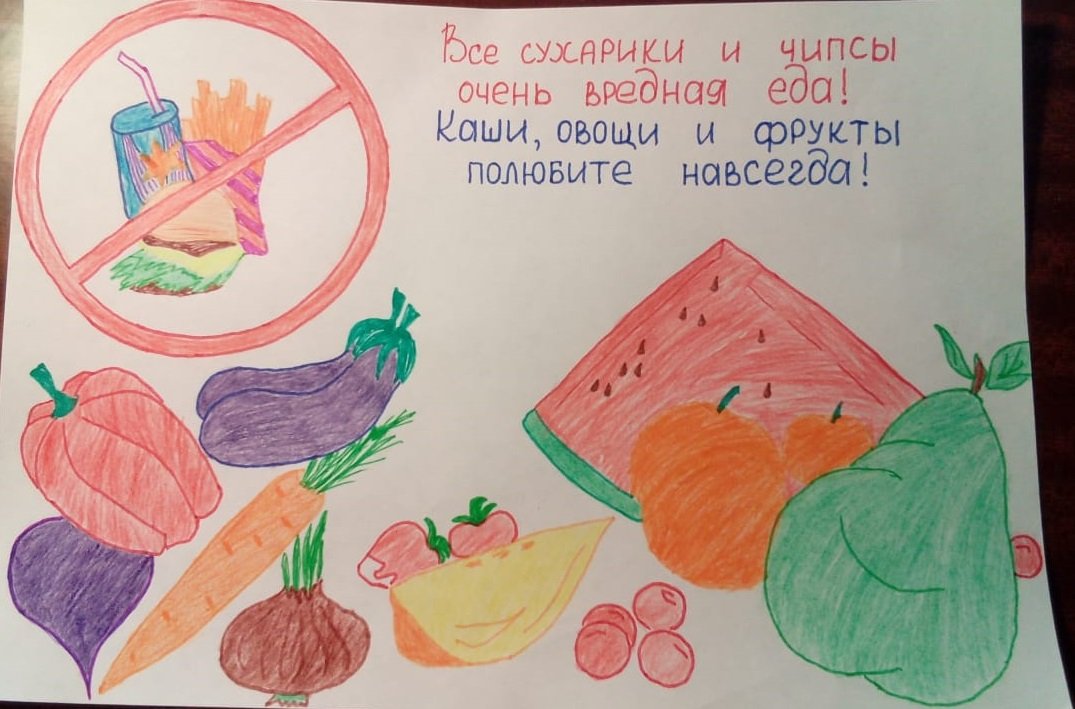 Все сухарики и чипсы
очень вредная еда!
Каши, овощи и фрукты
полюбите навсегда!